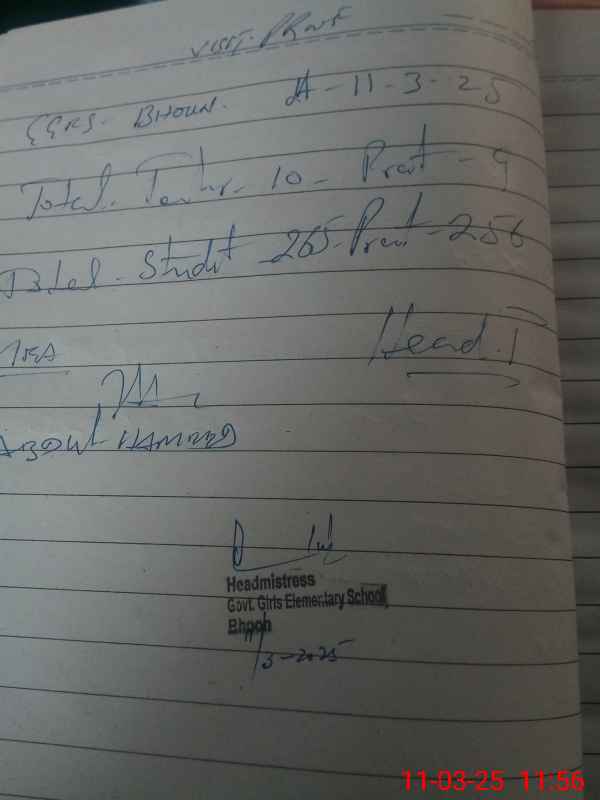 VISIT. Proof
GGES. BHOUN. dt - 11-3-25
Total. Teacher - 10 - Present - 9
Total - Student - 265 - Present - 256
Head.T
ABDUL HAMEED
Headmistress
Govt. Girls Elementary School
Bhoon
11/3-2025
11-03-25 11:56